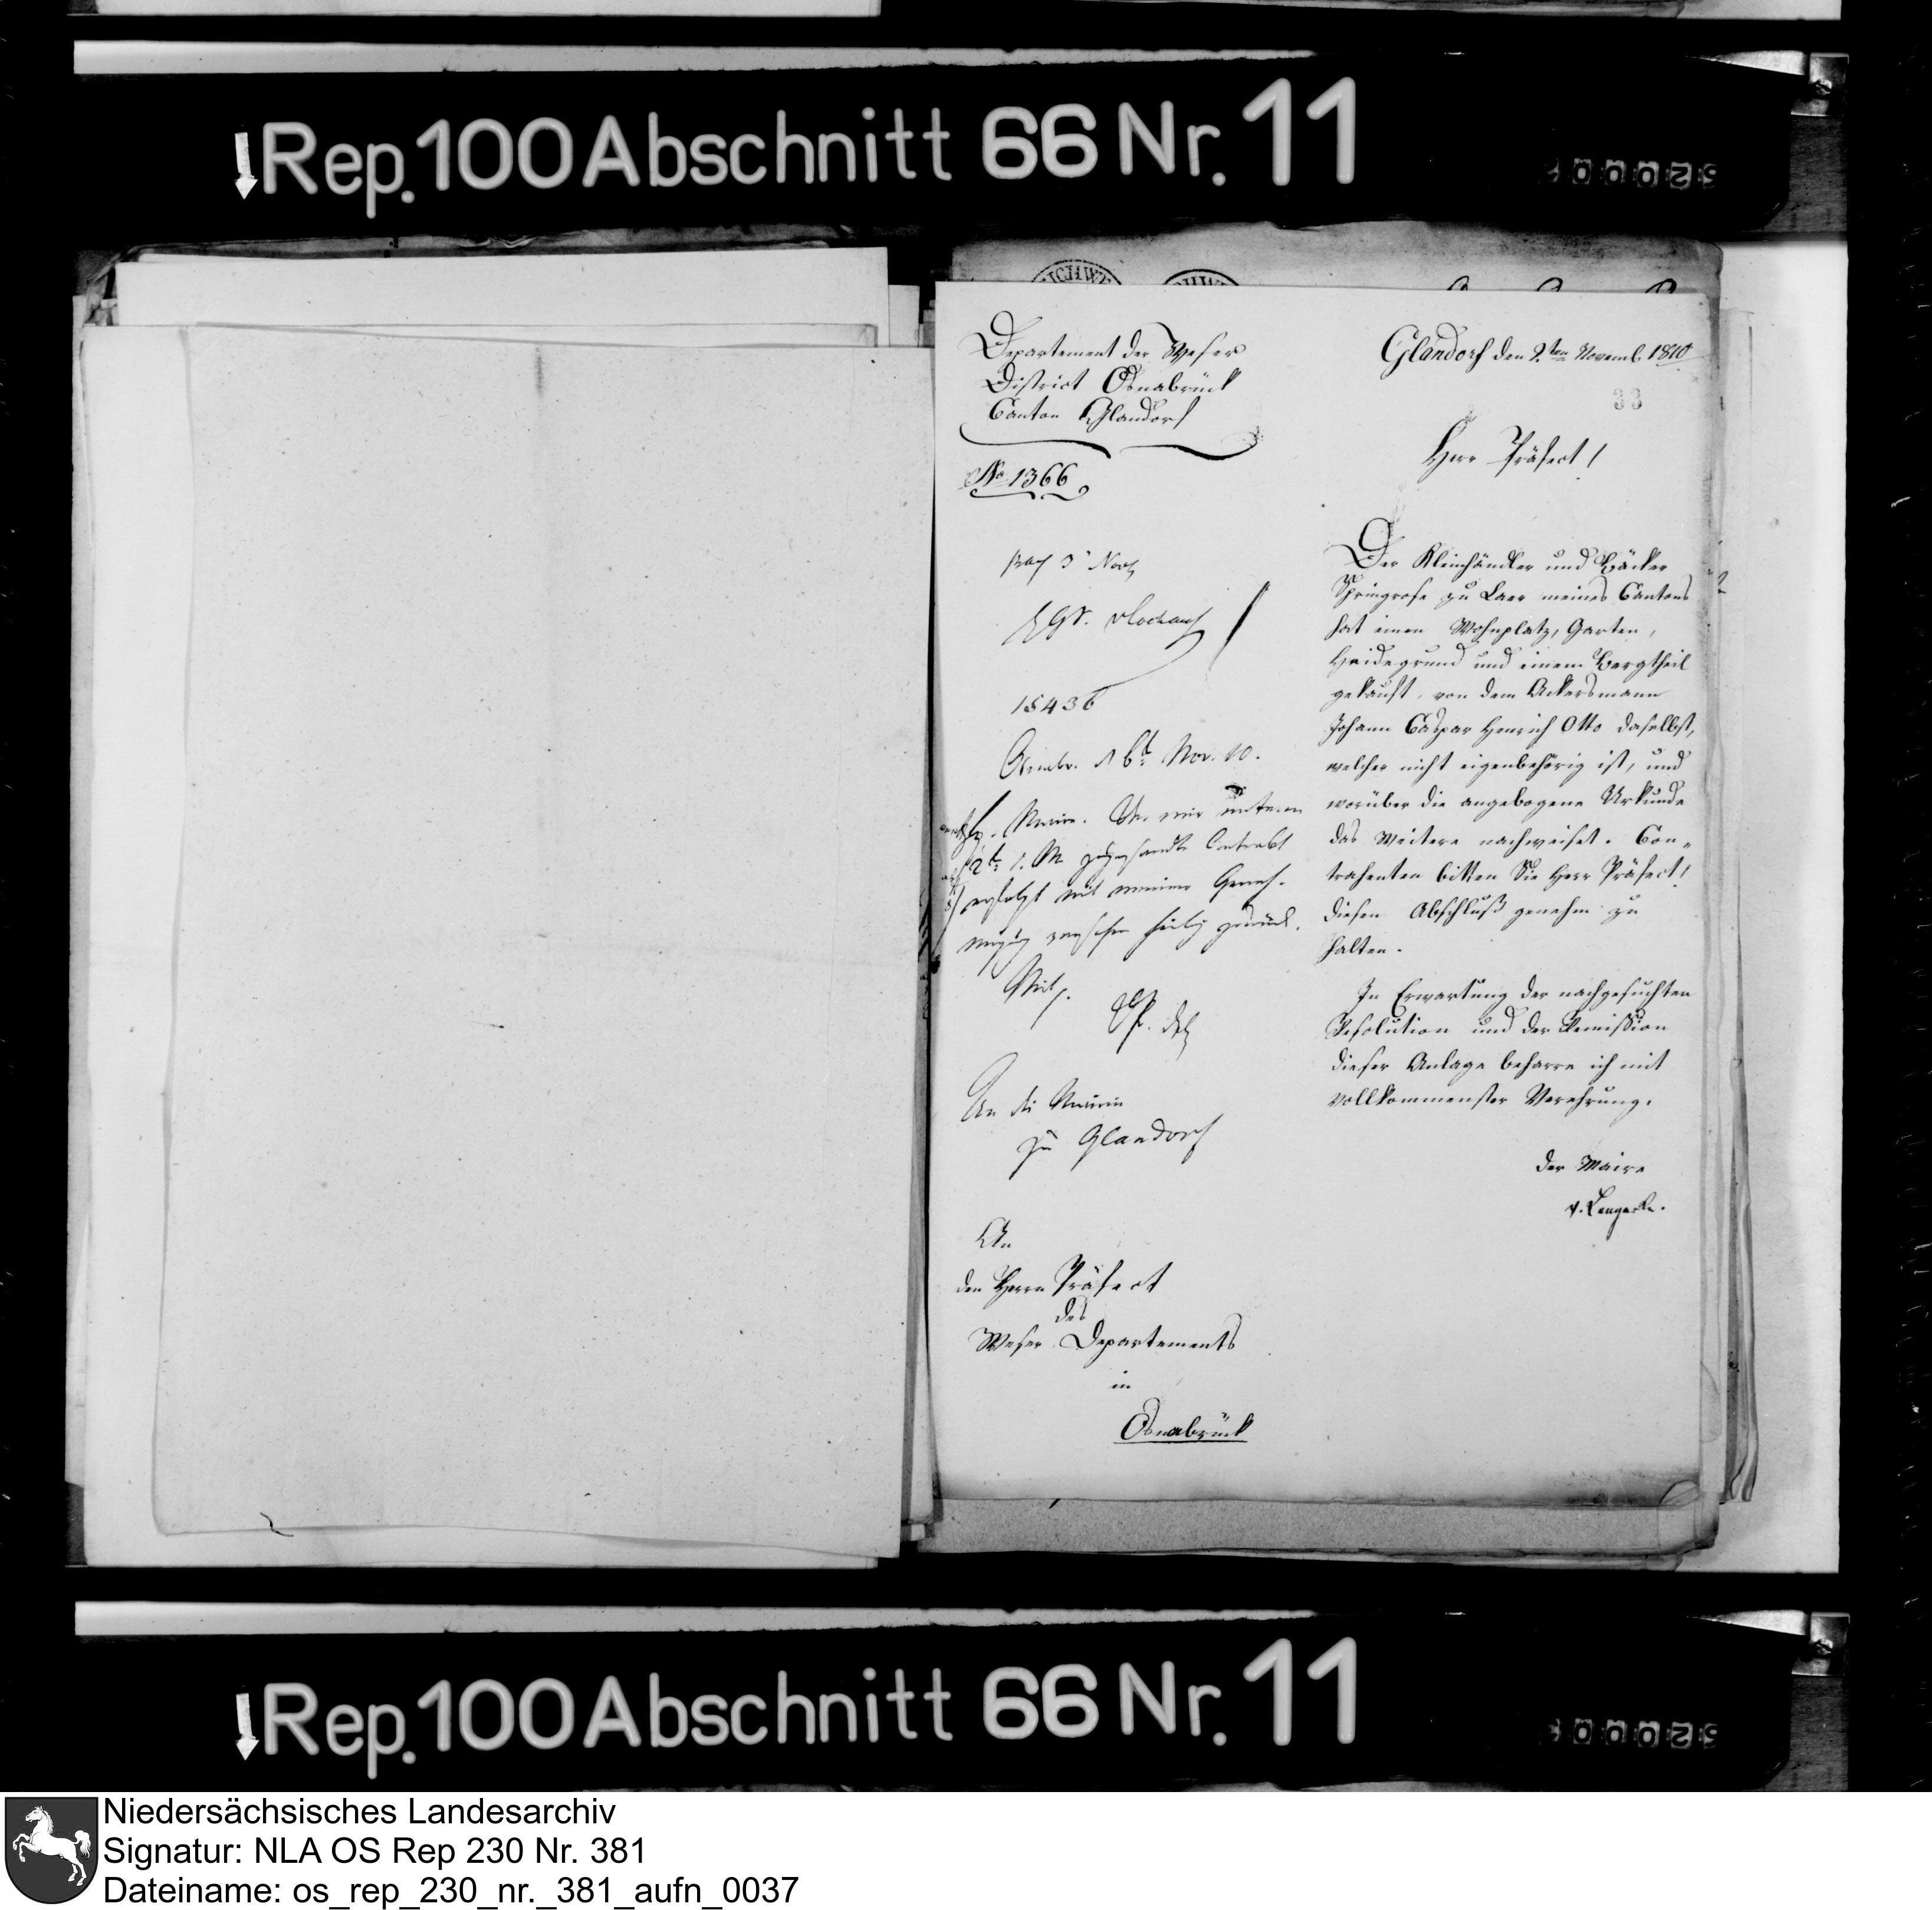 Rep. 100 Abschnitt 66 Nr. 11
Departement der Weser
District Osnabrück
Canton Glandorf
No 1366
Glandorf den 2ten Novemb. 1810
33
Herr Präfect!
Der Kleinhändler und Bäcker
Springrose zu Laer meines Cantons
hat einen Wohnplatz, Garten,
Heidegrund und einem Bergtheil
gekauft, von dem Ackersmann
Johann Caspar Henrich Otto daselbst,
welcher nicht eigenbehörig ist, und
worüber die angebogene Urkunde
das Weitere nachweiset. Con„
trahenten bitten Sie Herr Präfect!
diesen Abschluß genehm zu
halten.
In Erwartung der nachgesuchten
Resolution und der Remission
dieser Anlage beharre ich mit
vollkommenster Verehrung.
Der Maire
v. Lengerke.
3 Nov
15436
Osnabr. d 6t Nov. 10.
Maire. mir unterm
2t zugesandte Contract
erfolgt mit meiner Geneh-
migung versehen hiebei zurück.
An die Mairie
zu Glandorf
An
den Herrn Präfect
des
Weser Departements
in
Osnabrück
Rep. 100 Abschnitt 66 Nr. 11
Niedersächsisches Landesarchiv
Signatur: NLA OS Rep 230 Nr. 381
Dateiname: os_rep_230_nr._381_aufn_0037